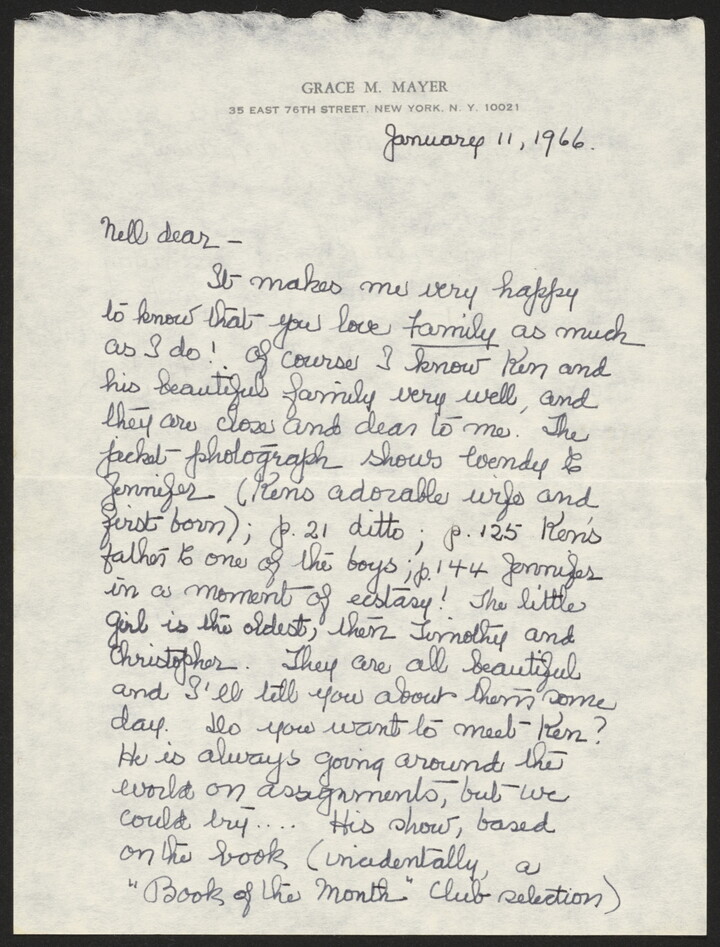 GRACE M. MAYER
35 EAST 76TH STREET, NEW YORK, N. Y. 10021
January 11, 1966.
Nell dear –
It makes me very happy
to know that you love Family as much
as I do! Of course I know Ken and
his beautiful family very well, and
they are close and dear to me. The
jacket photograph shows Wendy &
Jennifer (Ken's adorable wife and
first born); p. 21 ditto; p. 125 Ken's
father & one of the boys; p. 144 Jennifer
in a moment of ecstasy! The little
girl is the oldest, then Timothy and
Christopher. They are all beautiful
and I'll tell you about them some
day. Do you want to meet Ken?
He is always going around the
world on assignments, but we
could try.... His show, based
on the book (incidentally, a
"Book of the Month" Club selection)